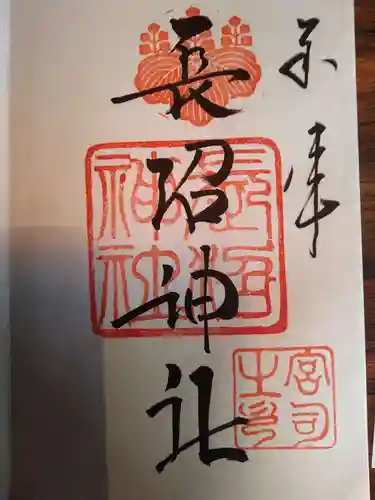 奉拝
長沼神社
長沼神社
宮司